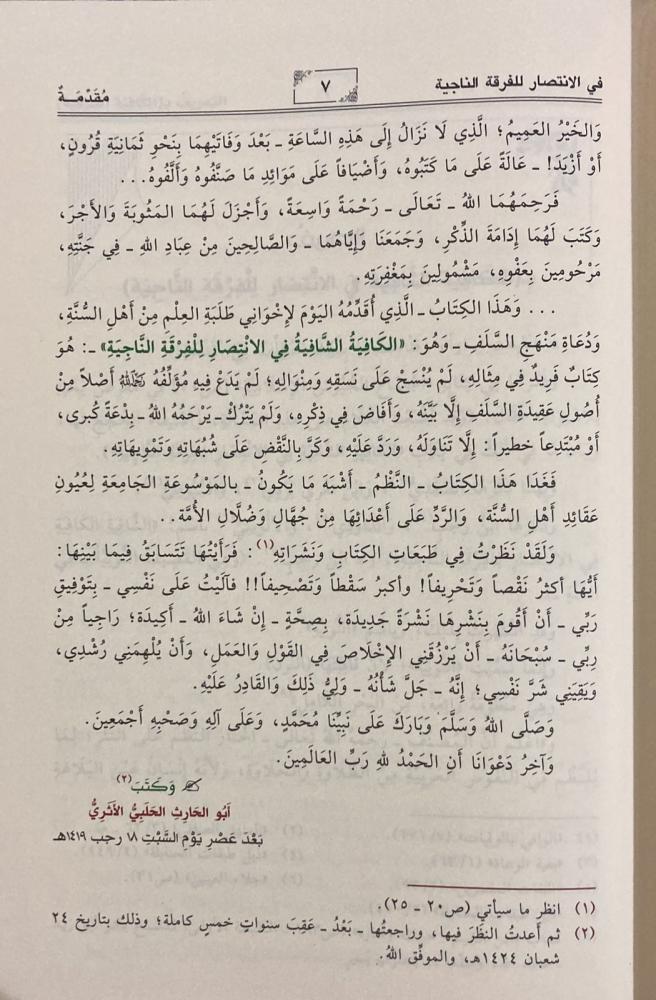 في الانتصار للفرقة الناجية
٧
مُقَدِّمَةٌ
وَالخَيْرُ العَمِيمُ؛ الَّذِي لَا نَزَالُ إِلَى هَذِهِ السَّاعَةِ ـ بَعْدَ وَفَاتَيْهِمَا بِنَحْوِ ثَمَانِيَةِ قُرُونٍ،
أَوْ أَزْيَدَ! ـ عَالَةً عَلَى مَا كَتَبُوهُ، وَأَضْيَافاً عَلَى مَوَائِدِ مَا صَنَّفُوهُ وَأَلَّفُوهُ...
فَرَحِمَهُمَا اللهُ ـ تَعَالَى ـ رَحْمَةً وَاسِعَةً، وَأَجْزَلَ لَهُمَا المَثُوبَةَ وَالأَجْرَ،
وَكَتَبَ لَهُمَا إِدَامَةَ الذِّكْرِ، وَجَمَعَنَا وَإِيَّاهُمَا ـ وَالصَّالِحِينَ مِنْ عِبَادِ اللهِ ـ فِي جَنَّتِهِ،
مَرْحُومِينَ بِعَفْوِهِ، مَشْمُولِينَ بِمَغْفِرَتِهِ.
... وَهَذَا الكِتَابُ ـ الَّذِي أُقَدِّمُهُ اليَوْمَ لإِخْوَانِي طَلَبَةِ العِلْمِ مِنْ أَهْلِ السُّنَّةِ،
وَدُعَاةِ مَنْهَجِ السَّلَفِ ـ وَهُوَ: «الكَافِيَةُ الشَّافِيَةُ فِي الانْتِصَارِ لِلْفِرْقَةِ النَّاجِيَةِ» ـ: هُوَ
كِتَابٌ فَرِيدٌ فِي مِثَالِهِ، لَمْ يُنْسَجْ عَلَى نَسَقِهِ وَمِنْوَالِهِ؛ لَمْ يَدَعْ فِيهِ مُؤَلِّفُهُ رَحِمَهُ اللهُ أَصْلاً مِنْ
أُصُولِ عَقِيدَةِ السَّلَفِ إِلَّا بَيَّنَهُ، وَأَفَاضَ فِي ذِكْرِهِ، وَلَمْ يَتْرُكْ ـ يَرْحَمُهُ اللهُ ـ بِدْعَةً كُبرى،
أَوْ مُبْتَدِعاً خطيراً: إِلَّا تَنَاوَلَهُ، وَرَدَّ عَلَيْهِ، وَكَرَّ بِالنَّقْضِ عَلَى شُبُهَاتِهِ وَتَمْوِيهَاتِهِ.
فَغَدَا هَذَا الكِتَابُ ـ النَّظْمُ ـ أَشْبَهَ مَا يَكُونُ ـ بالمَوْسُوعَةِ الجَامِعَةِ لِعُيُونِ
عَقَائِدِ أَهْلِ السُّنَّة، وَالرَّدِّ عَلَى أَعْدَائِهَا مِنْ جُهَّالِ وَضُلَّالِ الأُمَّة..
وَلَقَدْ نَظَرْتُ فِي طَبَعَاتِ الكِتَابِ وَنَشَرَاتِهِ(١): فَرَأَيْتُهَا تَتَسَابَقُ فِيمَا بَيْنِهَا:
أَيُّهَا أكثرُ نَقْصاً وَتَحْرِيفاً! وأكبرُ سَقْطاً وَتَصْحِيفاً!! فآلَيْتُ عَلَى نَفْسِي ـ بِتَوْفِيقِ
رَبِّي ـ أَنْ أَقُومَ بِنَشْرِهَا نَشْرَةً جَدِيدَة، بِصِحَّةٍ ـ إِنْ شَاءَ اللهُ ـ أَكِيدَة؛ رَاجِياً مِنْ
رَبِّي ـ سُبْحَانَهُ ـ أَنْ يَرْزُقَنِي الإِخْلَاصَ فِي القَوْلِ وَالعَمَلِ، وَأَنْ يُلْهِمَنِي رُشْدِي،
وَيَقِيَنِي شَرَّ نَفْسِي؛ إِنَّهُ ـ جَلَّ شَأْنُهُ ـ وَلِيُّ ذَلِكَ وَالقَادِرُ عَلَيْهِ.
وَصَلَّى اللهُ وَسَلَّمَ وَبَارَكَ عَلَى نَبِيِّنَا مُحَمَّدٍ، وَعَلَى آلِهِ وَصَحْبِهِ أَجْمَعِينَ.
وَآخِرُ دَعْوَانَا أَنِ الحَمْدُ للهِ رَبِّ العَالَمِينَ.
وَكَتَبَ(٢)
أَبُو الحَارِثِ الحَلَبِيُّ الأَثَرِيُّ
بَعْدَ عَصْرِ يَوْمِ السَّبْتِ ١٨ رجب ١٤١٩هـ
(١) انظر ما سيأتي (ص٢٠ ـ ٢٥).
(٢) ثم أعدتُ النظَرَ فيها، وراجعتُها ـ بَعْدُ ـ عَقِبَ سنواتٍ خمسٍ كاملة؛ وذلك بتاريخ ٢٤
شعبان ١٤٢٤هـ، والموفِّق اللهُ.